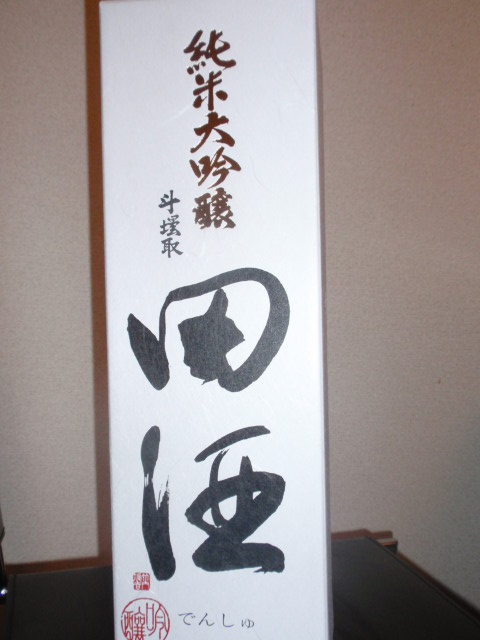 純米大吟醸
斗壜取
田酒
でんしゅ
吟醸